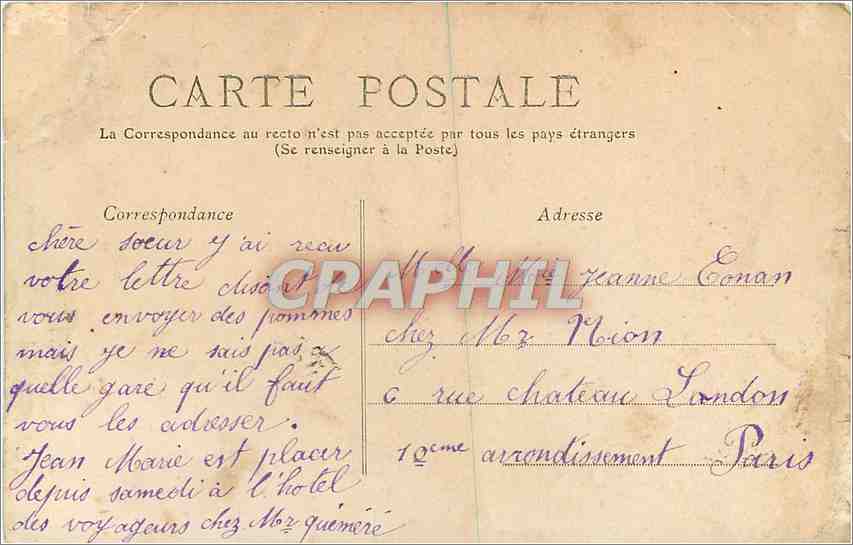 CARTE POSTALE
La Correspondance au recto n'est pas acceptée par tous les pays étrangers
(Se renseigner à la Poste)
Correspondance
chère soeur j'ai recu
votre lettre disant de
vous envoyer des pommes
mais je ne sais pas a
quelle gare qu'il faut
vous les adresser.
Jean Marie est placer
depuis samedi à l'hotel
des voyageurs chez Mr quéméré
Adresse
Mlle Mrie Jeanne Conan
chez Mr Nion
6 rue chateau Landon
10eme arrondissement Paris
CPAPHIL